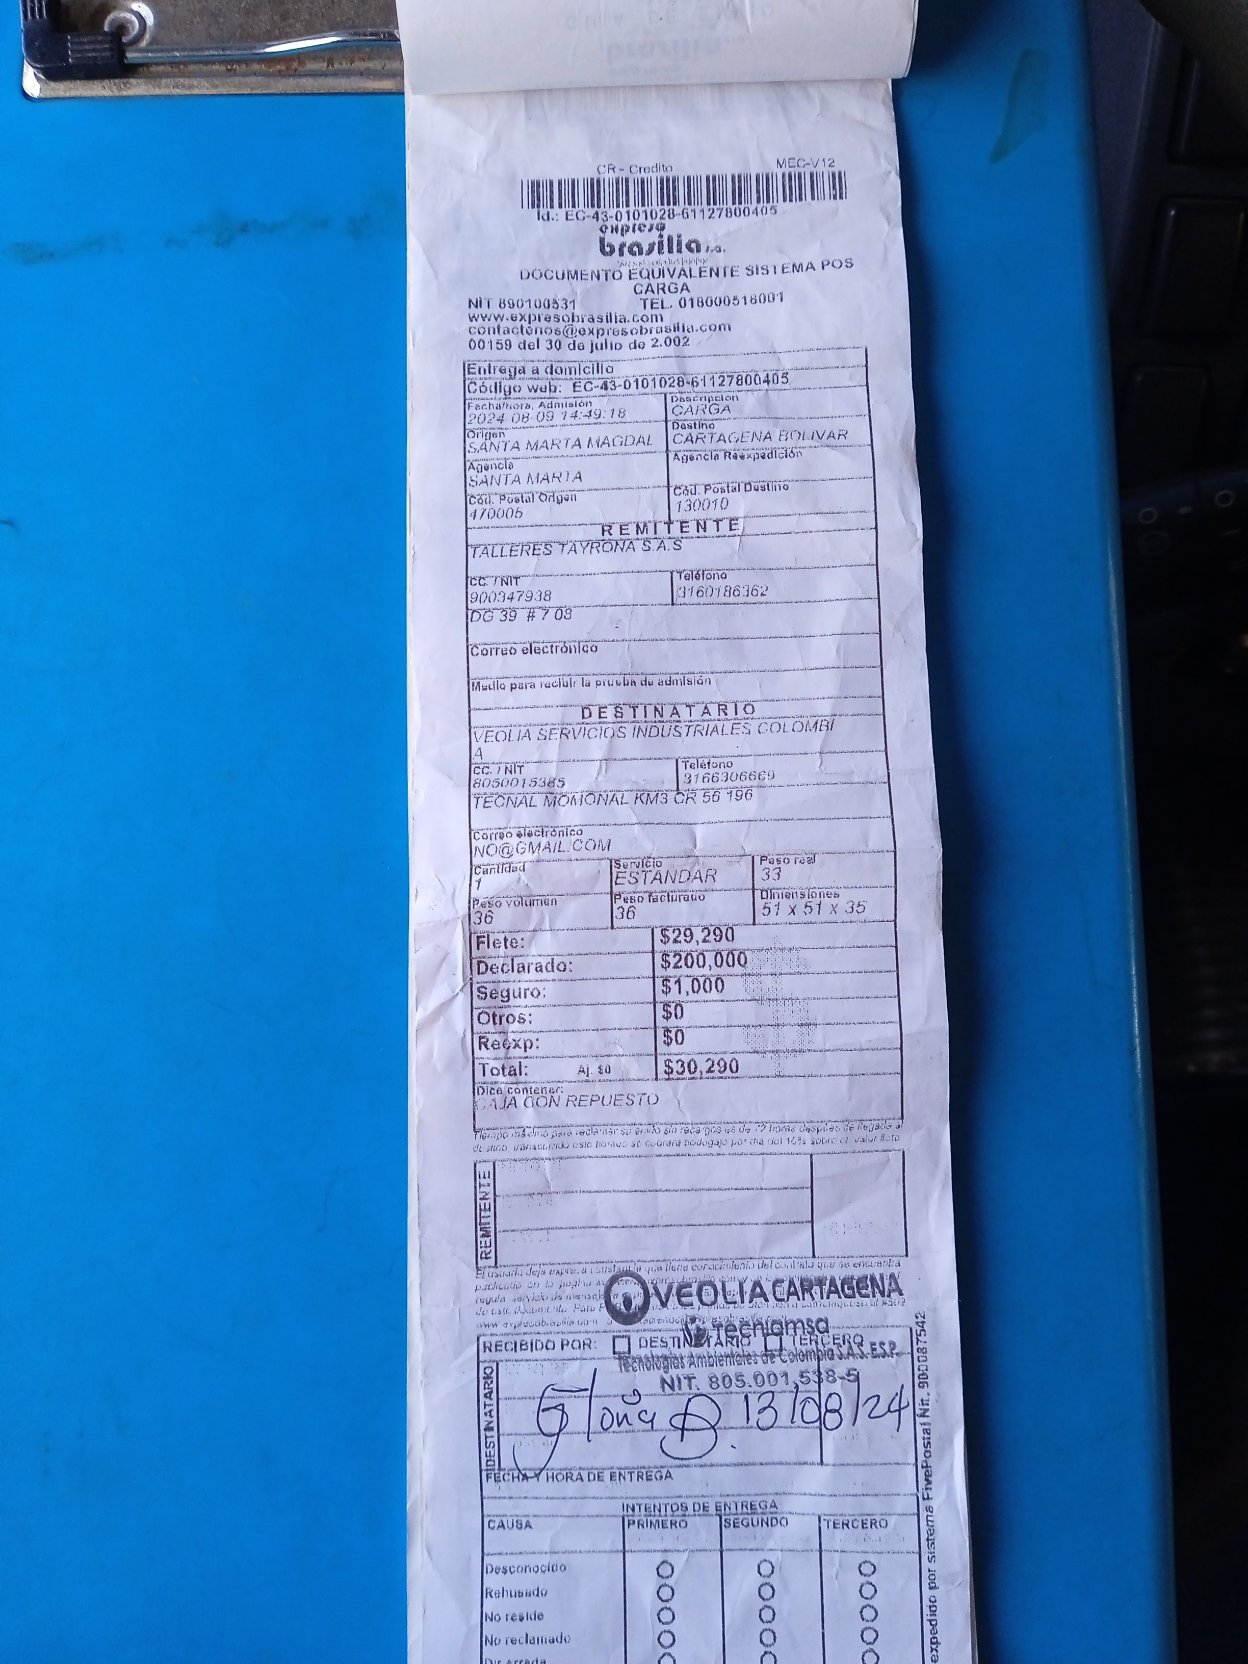 CR - Credito MEC-V12
Id.: EC-43-0101028-61127800405
expreso
brasilia s.a.
DOCUMENTO EQUIVALENTE SISTEMA POS
CARGA
NIT 890100531 TEL. 018000518001
www.expresobrasilia.com
contactenos@expresobrasilia.com
00159 del 30 de julio de 2.002
Entrega a domicilio
Código web: EC-43-0101028-61127800405
Fecha/hora, Admisión Descripcion
2024-08-09 14:49:18 CARGA
Origen Destino
SANTA MARTA MAGDAL CARTAGENA BOLIVAR
Agencia Agencia Reexpedición
SANTA MARTA
Cód. Postal Origen Cód. Postal Destino
470006 130010
REMITENTE
TALLERES TAYRONA S.A.S
CC. / NIT Teléfono
900347938 3160186362
DG 39 # 7 08
Correo electrónico
Medio para recibir la prueba de admisión
DESTINATARIO
VEOLIA SERVICIOS INDUSTRIALES COLOMBI
A
CC. / NIT Teléfono
8050015385 3166306669
TECNAL MOMONAL KM3 CR 56 196
Correo electrónico
NO@GMAIL.COM
Cantidad Servicio Peso real
1 ESTANDAR 33
Peso volumen Peso facturado Dimensiones
36 36 51 x 51 x 35
Flete: $29,290
Declarado: $200,000
Seguro: $1,000
Otros: $0
Reexp: $0
Total: Aj. $0 $30,290
Dice contener:
CAJA CON REPUESTO
REMITENTE
VEOLIA CARTAGENA
Tecniamsa
RECIBIDO POR: DESTINATARIO TERCERO
Tecnologías Ambientales de Colombia S.A.S. E.S.P.
NIT. 805.001.538-5
DESTINATARIO
Gloria B. 13/08/24
FECHA Y HORA DE ENTREGA
INTENTOS DE ENTREGA
CAUSA PRIMERO SEGUNDO TERCERO
Desconocido
Rehusado
No reside
No reclamado
Dir errada
expedido por sistema FivePostal Nit. 900087542